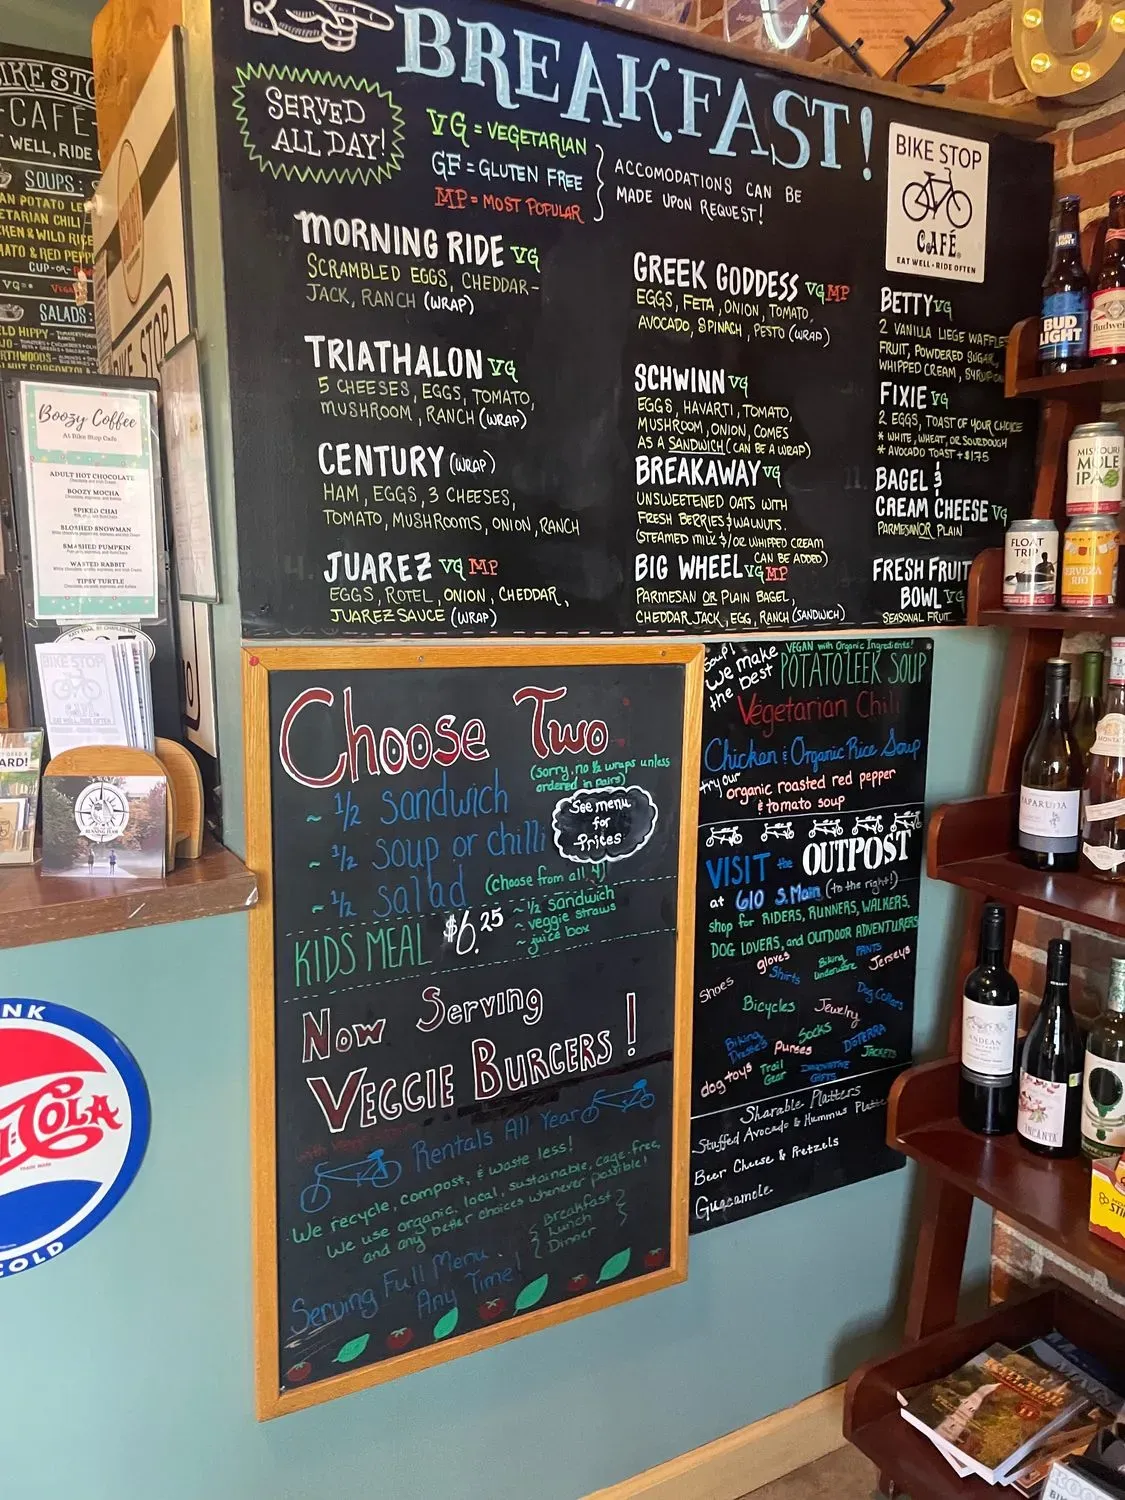 BREAKFAST!
SERVED
ALL DAY!
VG = VEGETARIAN
GF = GLUTEN FREE
MP = MOST POPULAR
ACCOMODATIONS CAN BE
MADE UPON REQUEST!
BIKE STOP
CAFÉ
EAT WELL - RIDE OFTEN
MORNING RIDE VG
SCRAMBLED EGGS, CHEDDAR-
JACK, RANCH (WRAP)
TRIATHALON VG
5 CHEESES, EGGS, TOMATO,
MUSHROOM, RANCH (WRAP)
CENTURY (WRAP)
HAM, EGGS, 3 CHEESES,
TOMATO, MUSHROOMS, ONION, RANCH
JUAREZ VG MP
EGGS, ROTEL, ONION, CHEDDAR,
JUAREZ SAUCE (WRAP)
GREEK GODDESS VG MP
EGGS, FETA, ONION, TOMATO,
AVOCADO, SPINACH, PESTO (WRAP)
SCHWINN VG
EGGS, HAVARTI, TOMATO,
MUSHROOM, ONION, COMES
AS A SANDWICH (CAN BE A WRAP)
BREAKAWAY VG
UNSWEETENED OATS WITH
FRESH BERRIES & WALNUTS.
(STEAMED MILK &/OR WHIPPED CREAM
CAN BE ADDED)
BIG WHEEL VG MP
PARMESAN OR PLAIN BAGEL,
CHEDDAR JACK, EGG, RANCH (SANDWICH)
BETTY VG
2 VANILLA LIEGE WAFFLES
FRUIT, POWDERED SUGAR,
WHIPPED CREAM, SYRUP
FIXIE VG
2 EGGS, TOAST OF YOUR CHOICE
* WHITE, WHEAT, OR SOURDOUGH
* AVOCADO TOAST + $1.75
BAGEL &
CREAM CHEESE VG
PARMESAN OR PLAIN
FRESH FRUIT
BOWL VG
SEASONAL FRUIT
BIKE STOP
-CAFE-
WELL, RIDE
SOUPS:
SALADS:
Boozy Coffee
At Bike Stop Cafe
ADULT HOT CHOCOLATE
BOOZY MOCHA
SPIKED CHAI
BLOSHED SNOWMAN
SMASHED PUMPKIN
WASTED RABBIT
TIPSY TURTLE
BIKE STOP
Choose Two
(sorry, no ½ wraps unless
ordered in pairs)
~ ½ sandwich
~ ½ soup or chilli
~ ½ salad (choose from all 4)
See menu
for
Prices
KIDS MEAL $6.25
~ ½ sandwich
~ veggie straws
~ juice box
Now Serving
VEGGIE BURGERS!
Rentals All Year
We recycle, compost, & waste less!
We use organic, local, sustainable, cage-free,
and any better choices whenever possible!
Serving Full Menu
Any Time!
Breakfast
Lunch
Dinner
Soup!
We make
the best
VEGAN with Organic Ingredients!
POTATO LEEK SOUP
Vegetarian Chili
Chicken & Organic Rice Soup
try our
organic roasted red pepper
& tomato soup
VISIT the OUTPOST
at 610 S. Main (to the right!)
shop for RIDERS, RUNNERS, WALKERS,
DOG LOVERS, and OUTDOOR ADVENTURERS
Shoes
gloves
Shirts
Biking
Underware
PANTS
Jerseys
Bicycles
Jewelry
Dog Collars
Socks
Purses
DōTERRA
JACKETS
dog toys
Trail
Gear
Sharable Platters
Stuffed Avocado & Hummus Platter
Beer Cheese & Pretzels
Guacamole
BUD
LIGHT
Budweiser
MISSOURI
MULE
IPA
FLOAT
TRIP
CERVEZA
RIO
COLA
COLD